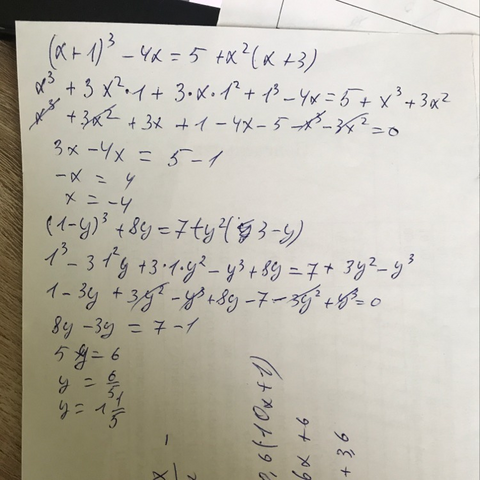 (x+1)³ - 4x = 5 + x²(x+3)
x³ + 3x²·1 + 3·x·1² + 1³ - 4x = 5 + x³ + 3x²
x³ + 3x² + 3x + 1 - 4x - 5 - x³ - 3x² = 0
3x - 4x = 5 - 1
-x = 4
x = -4
(1-y)³ + 8y = 7 + y²(3-y)
1³ - 3 1²y + 3·1·y² - y³ + 8y = 7 + 3y² - y³
1 - 3y + 3y² - y³ + 8y - 7 - 3y² + y³ = 0
8y - 3y = 7 - 1
5y = 6
y = 6/5
y = 1 1/5
,6(10x+1)
6x + 6
+ 3,6